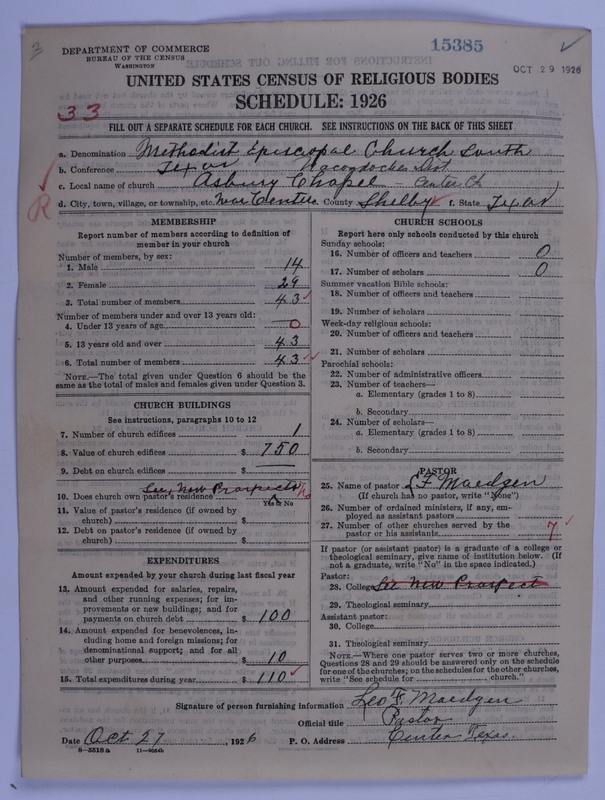 15385
DEPARTMENT OF COMMERCE
BUREAU OF THE CENSUS
WASHINGTON
OCT 29 1926
UNITED STATES CENSUS OF RELIGIOUS BODIES
SCHEDULE: 1926
33
FILL OUT A SEPARATE SCHEDULE FOR EACH CHURCH. SEE INSTRUCTIONS ON THE BACK OF THIS SHEET
a. Denomination Methodist Episcopal Church South
b. Conference Texas Nacogdoches Dist
c. Local name of church Asbury Chapel - Center Ch
d. City, town, village, or township, etc. Near Center e. County Shelby f. State Texas
R
MEMBERSHIP
Report number of members according to definition of
member in your church
Number of members, by sex:
1. Male 14
2. Female 29
3. Total number of members 43
Number of members under and over 13 years old:
4. Under 13 years of age 0
5. 13 years old and over 43
6. Total number of members 43
NOTE.—The total given under Question 6 should be the
same as the total of males and females given under Question 3.
CHURCH BUILDINGS
See instructions, paragraphs 10 to 12
7. Number of church edifices 1
8. Value of church edifices $ 750
9. Debt on church edifices $
See New Prospects no
10. Does church own pastor's residence
Yes or No
11. Value of pastor's residence (if owned by
church) $
12. Debt on pastor's residence (if owned by
church) $
EXPENDITURES
Amount expended by your church during last fiscal year
13. Amount expended for salaries, repairs,
and other running expenses; for im-
provements or new buildings; and for
payments on church debt $ 100
14. Amount expended for benevolences, in-
cluding home and foreign missions; for
denominational support; and for all
other purposes $ 10
15. Total expenditures during year $ 110
CHURCH SCHOOLS
Report here only schools conducted by this church
Sunday schools:
16. Number of officers and teachers 0
17. Number of scholars 0
Summer vacation Bible schools:
18. Number of officers and teachers
19. Number of scholars
Week-day religious schools:
20. Number of officers and teachers
21. Number of scholars
Parochial schools:
22. Number of administrative officers
23. Number of teachers—
a. Elementary (grades 1 to 8)
b. Secondary
24. Number of scholars—
a. Elementary (grades 1 to 8)
b. Secondary
PASTOR
25. Name of pastor L F Maedgen
(If church has no pastor, write "None")
26. Number of ordained ministers, if any, em-
ployed as assistant pastors
27. Number of other churches served by the
pastor or his assistants 7
If pastor (or assistant pastor) is a graduate of a college or
theological seminary, give name of institution below. (If
not a graduate, write "No" in the space indicated.)
Pastor:
28. College See New Prospect
29. Theological seminary
Assistant pastor:
30. College
31. Theological seminary
NOTE.—Where one pastor serves two or more churches,
Questions 28 and 29 should be answered only on the schedule
for one of the churches; on the schedules for the other churches,
write "See schedule for church."
Signature of person furnishing information Leo F. Maedgen
Official title Pastor
Date Oct 27, 1926 P. O. Address Center Texas.
8—5518a